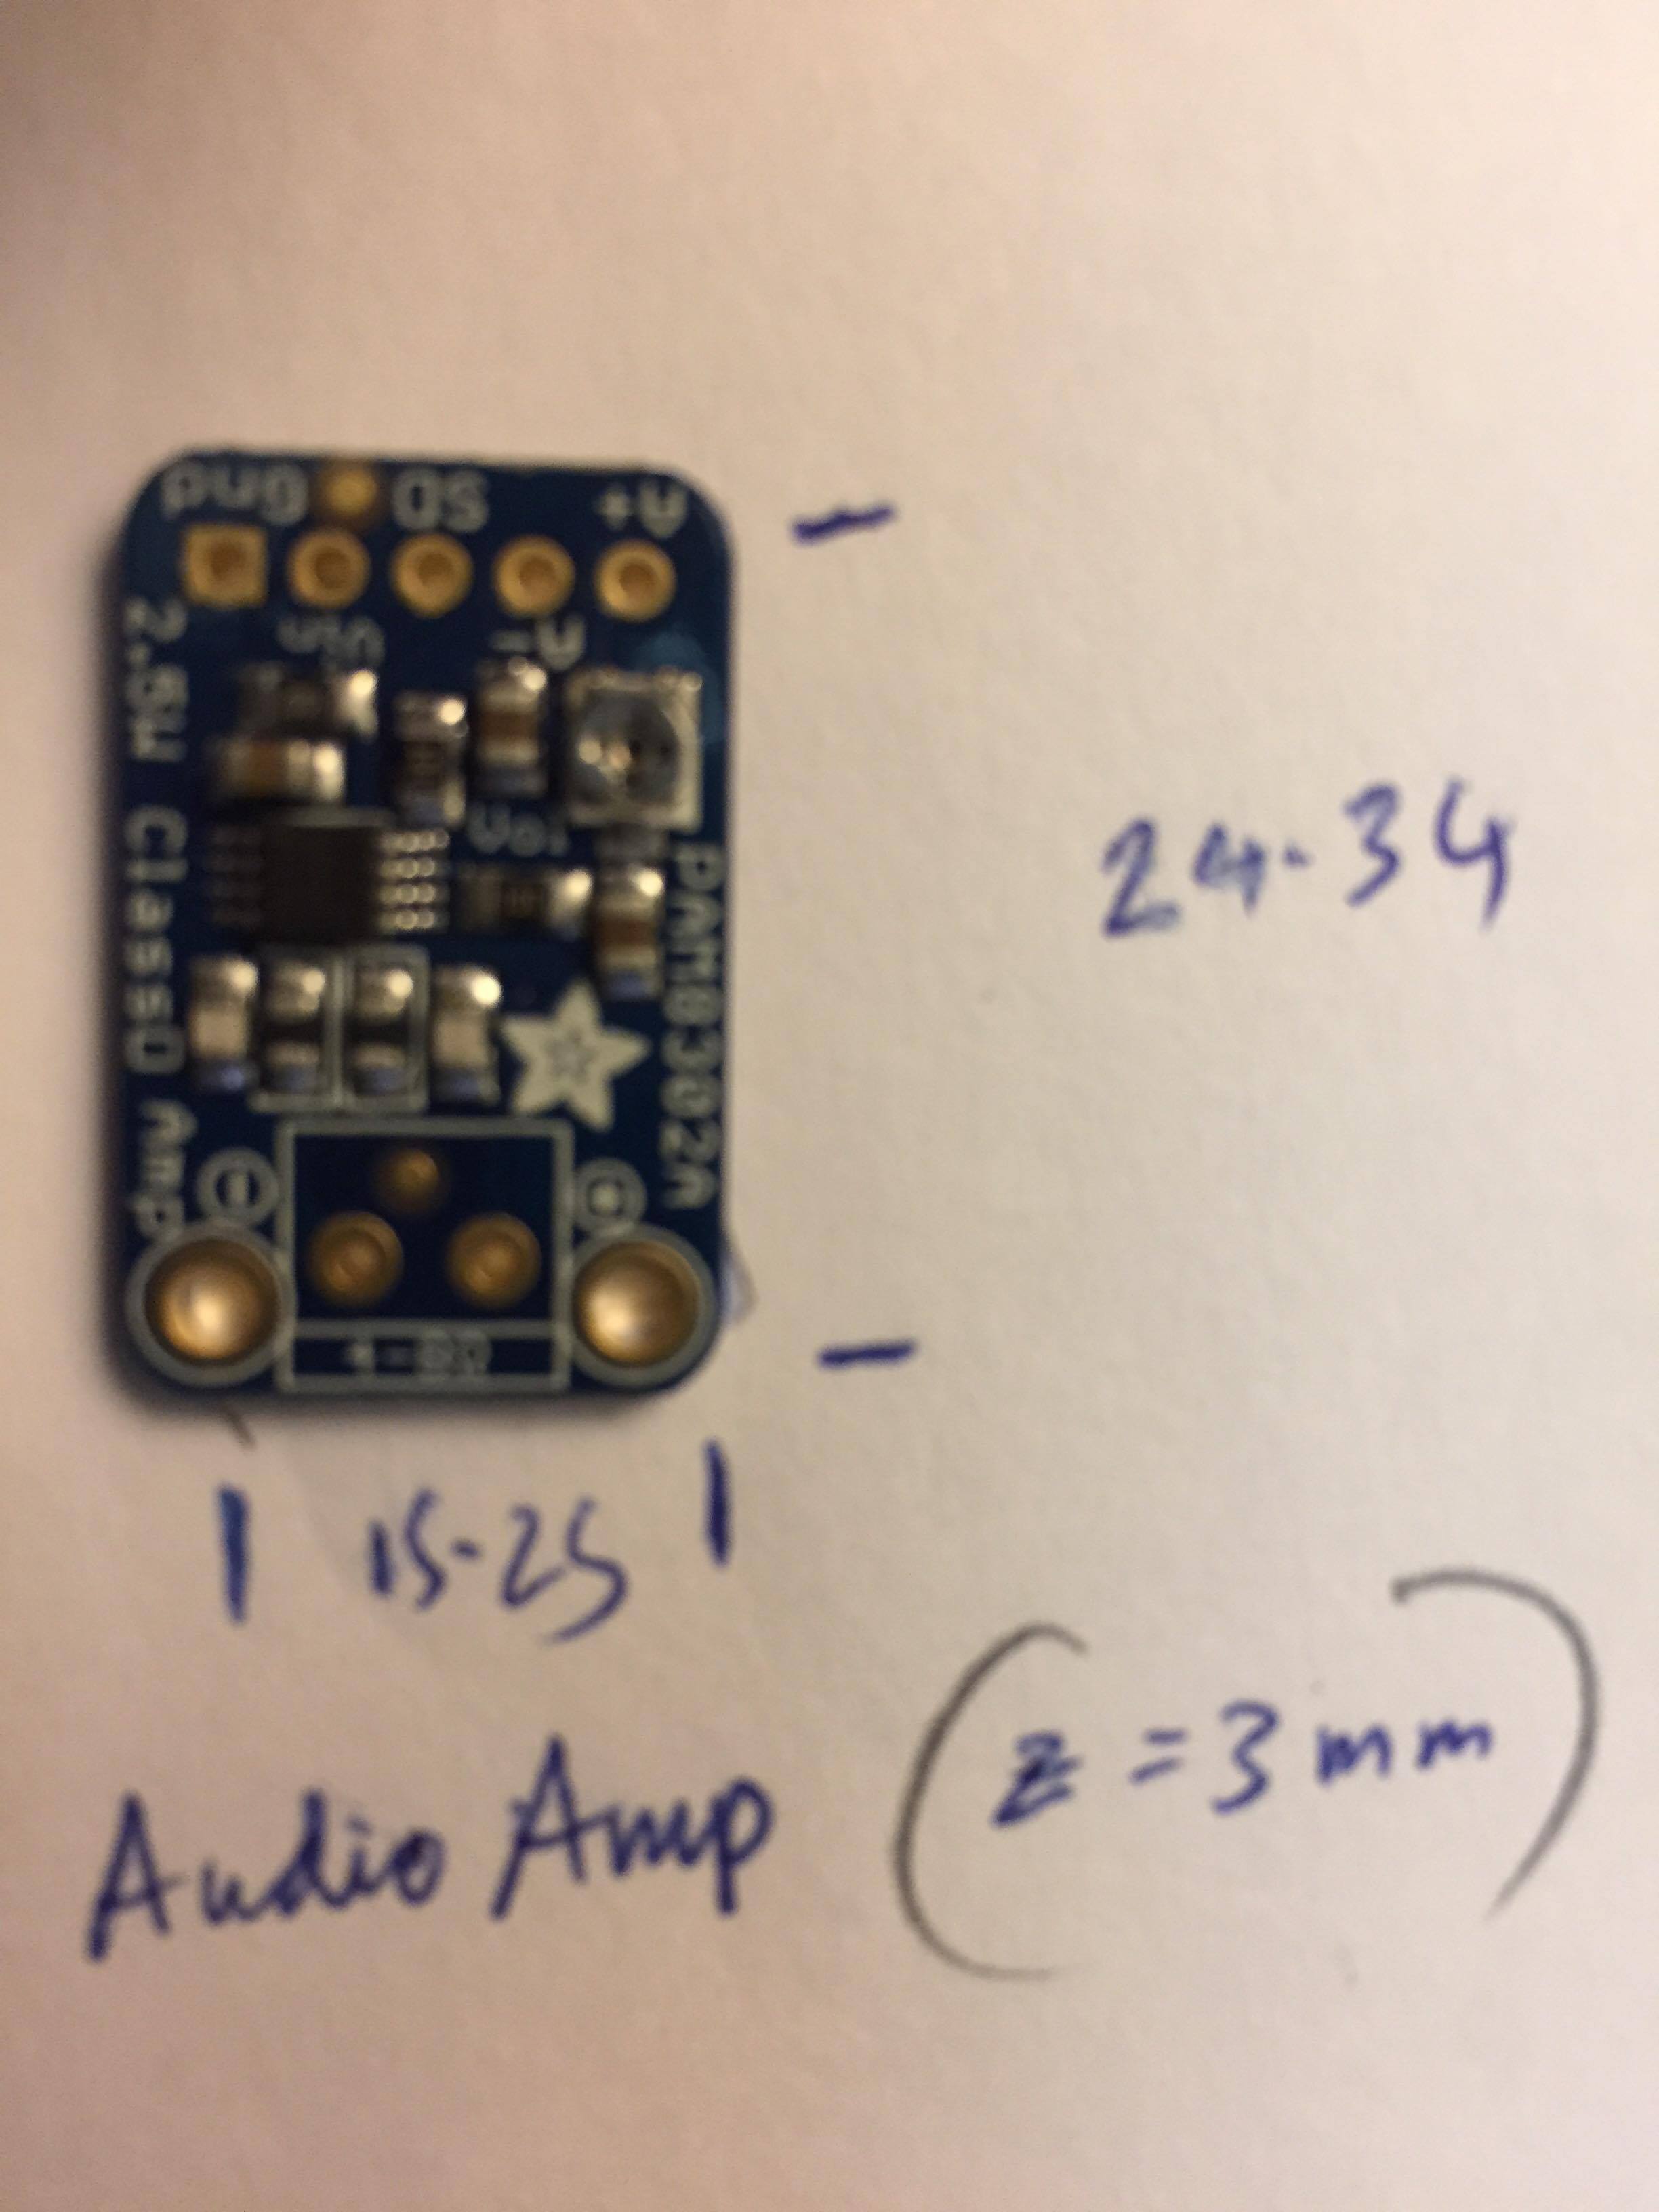 Gnd SD A+
Vin A-
2.5W ClassD Amp
Vol
PAM8302A
4-8Ω
24.34
15.25
Audio Amp
(z = 3mm)